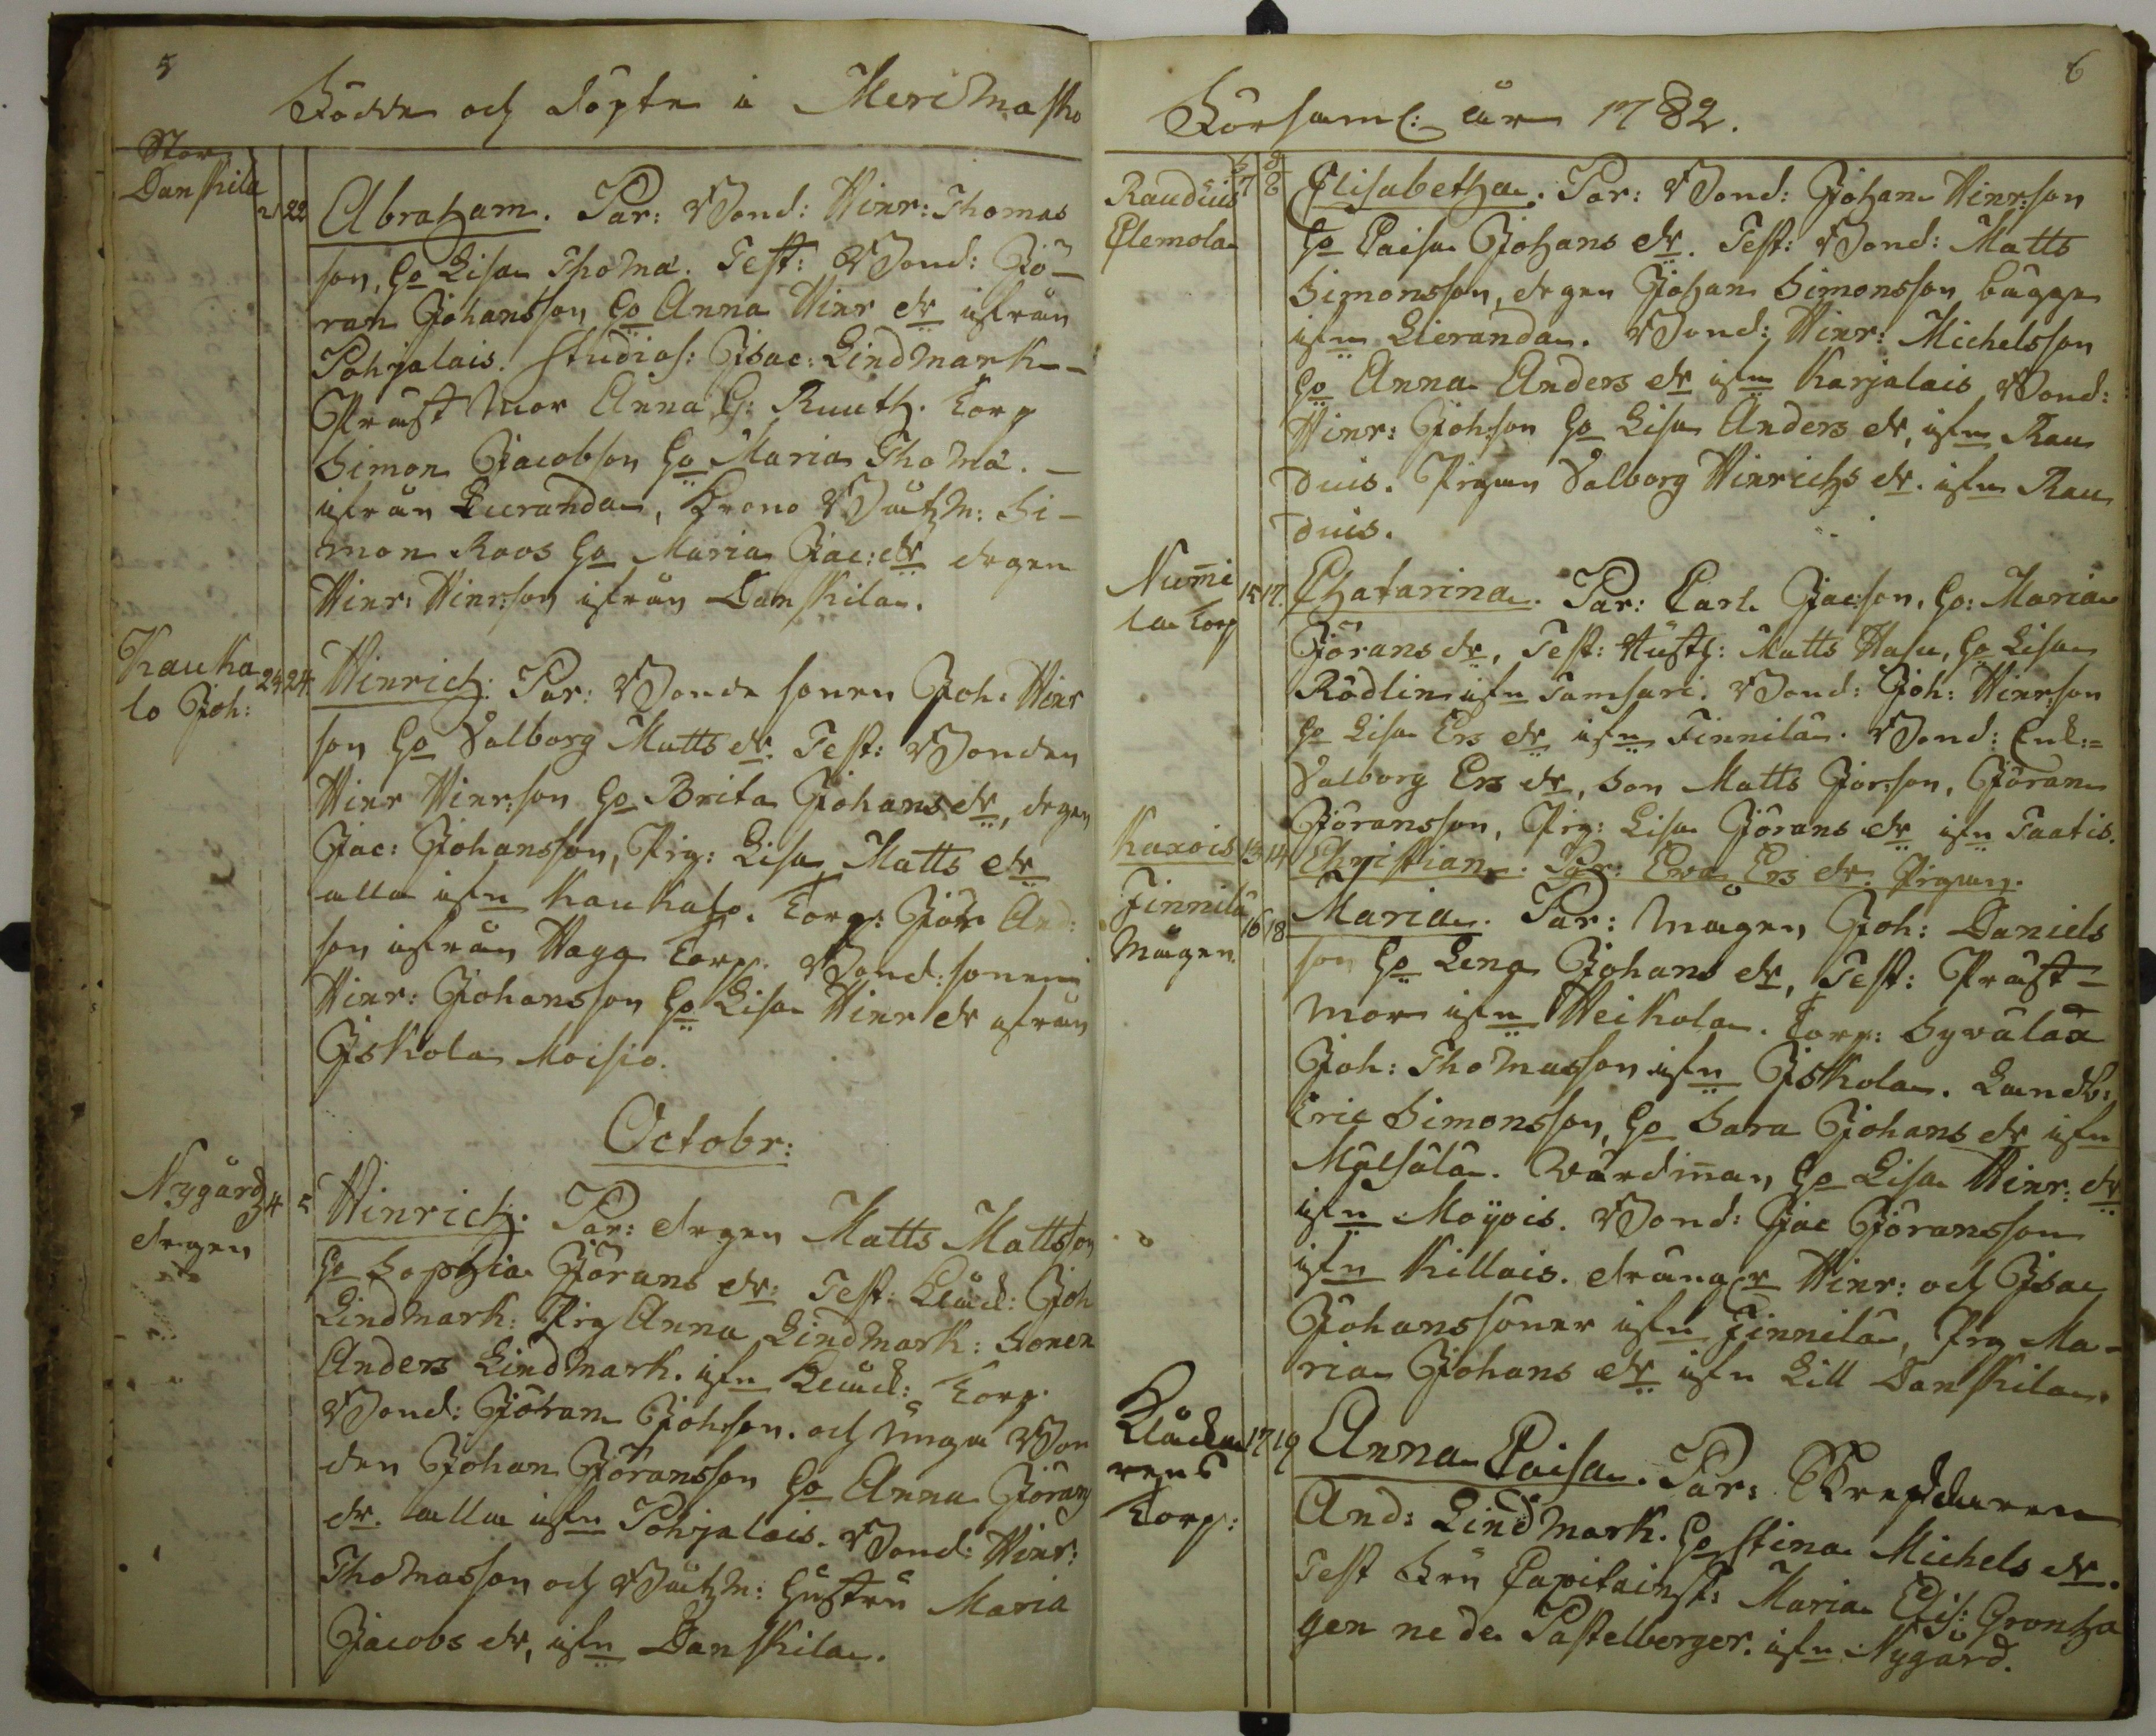 5
Födde och döpte i Merimasku
Stor
Danskila
21 22 Abraham. Par: Bond: Hinr: Thomas
son, Ho Lisa Thomæ. Test: Bond: Jö-
ran Johansson Ho Anna Hinr dr ifrån
Pohjalais. Studios: Isac: Lindmark
Prust mor Anna G: Ruuth. Torp
Simon Jacobson Ho Maria Thomæ.
ifrån Lieranda, Krono Båtzm: Si-
mon Roos Ho Maria Jac: dr dregen
Hinr: Hinrson ifrån Danskila.
Kauka
lo Joh:
24 24 Hinrich. Par: Bonde sonen Joh: Hinr
son Ho Valborg Matts dr. Test: Bonden
Hinr Hinrson Ho Brita Johans dr, dregen
Jac: Johansson, Pig: Lisa Matts dr
alla ifn Kaukalo. Torp: Jör And:
son ifrån Haga Torp. Bond: sonen
Hinr: Johansson Ho Lisa Hinr dr ifrån
Iskola Moisio.
Octobr:
Nygård
dregen
4 5 Hinrich. Par: dregen Matts Mattsson
Ho Sophia Jörans dr: Test: Kluck: Joh
Lindmark: Pig Anna Lindmark: Sonen
Anders Lindmark. ifn Kluck: Torp.
Bond: Jöran Johsson. och unga Bon
den Johan Jöransson Ho Anna Jörans
dr. alla ifn Pohjalais. Bond: Hinr:
Thomasson och Båtzm: Hustru Maria
Jacobs dr, ifn Danskila.
6
Församl: år 1782.
Rauduis
Elemola
7 8 Elisabetha. Par: Bond: Johan Hinrson
Ho Caisa Johans dr. Test: Bond: Matts
Simonsson, dregen Johan Simonsson bägge
ifn Lieranda. Bond: Hinr: Michelsson
Ho Anna Anders dr ifn Karjalais Bond:
Hinr: Johson Ho Lisa Anders dr, ifn Rau
duis. Pigan Valborg Hinrichs dr. ifn Rau
duis.
Numi
la Torp
15 17. Chatarina. Par: Carl Jacson, Ho: Maria
Jörans dr, Test: Matts Hasu, Ho Lisa
Rödlin ifn Tamsari. Bond: Joh: Hinrson
Ho Lisa Ers dr ifn Finnilä. Bond: Enk:
Valborg Ers dr, Son Matts Jörson, Jöran
Jöransson, Pig: Lisa Jörans dr ifn Taatis.
Karois
13 14 Christian. Par: Ewa Ers dr. Pigan.
Finnilä
Mågen.
16 18 Maria. Par: Mågen Joh: Daniels
son Ho Lena Johans dr, Test: Prust-
mor ifn Heikola. Torp: Syvälax
Joh: Thomasson ifn Iskola. Landb:
Eric Simonsson, Ho Sara Johans dr ifn
Mälsälä. Wärdman, Ho Lisa Hinr: dr
ifn Moyois. Bond: Jac Jöransson
ifn Killais. drängar Hinr: och Isac
Johanssöner ifn Finnilä, Pig Ma-
ria Johans dr ifn Lill Danskila.
Klocka
rens
Torp:
17 19 Anna Caisa. Par:
And: Lindmark. Ho Stina Michels dr.
Test Fru Capitainsk: Maria Elis: Gronha
gen nede Pastelberger. ifn Nygård.